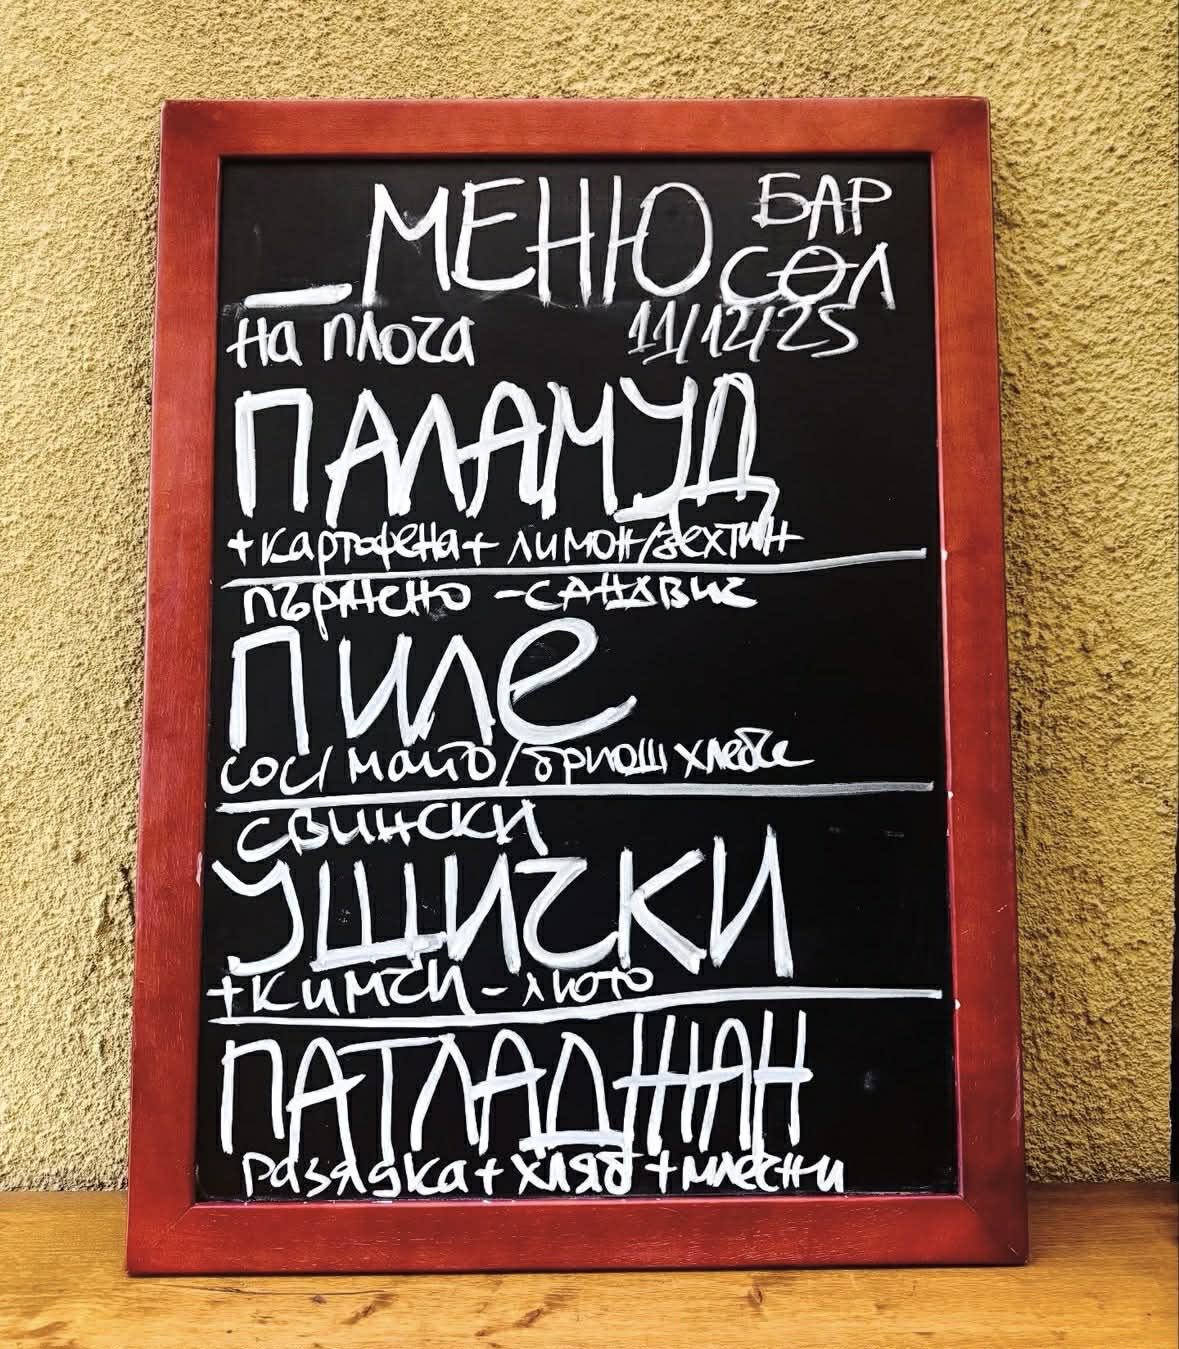 МЕНЮ БАР
СОЛ
на плоча 11/12/25
ПАЛАМУД
+картофена+ лимон/зехтин
пържено - сандвич
Пиле
сос/майо/бриош хлебче
свински
УШИЧКИ
+кимчи - люто
ПАТЛАДЖАН
разядка + хляб + млечни